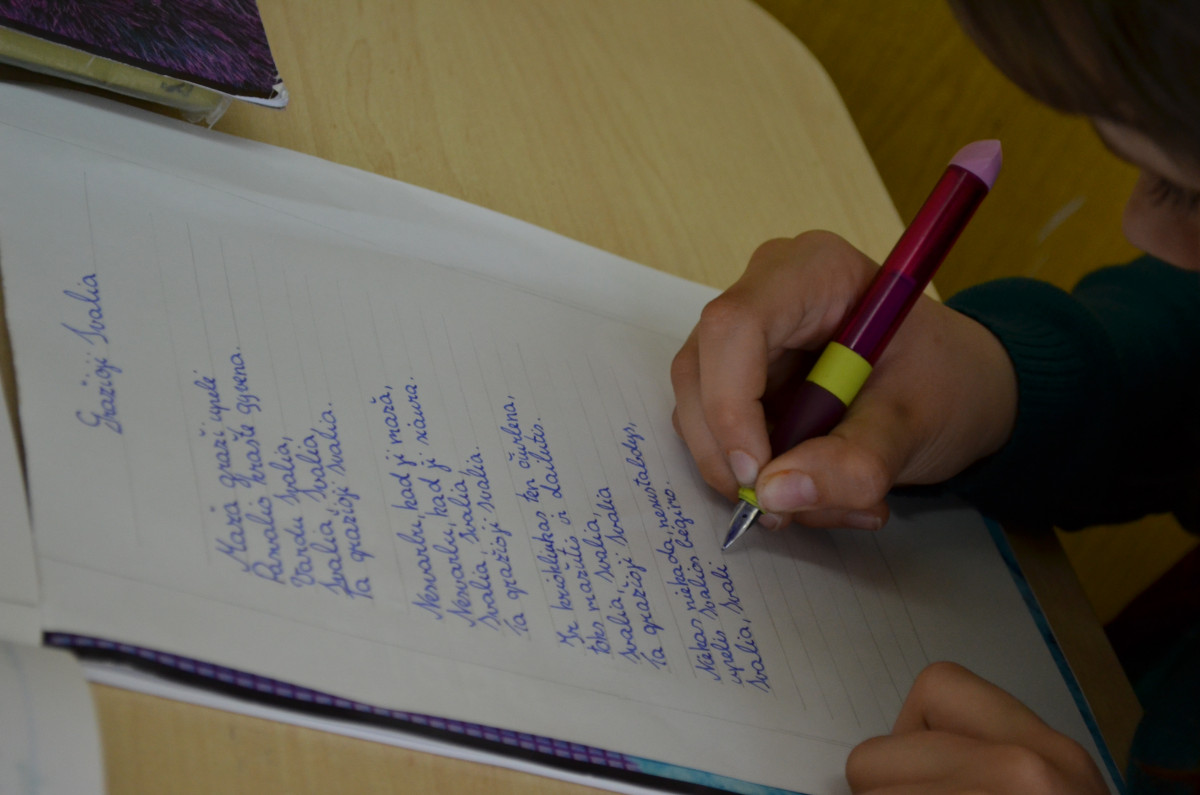 Gražioji Svalia
Maža graži upelė
Panalio krašte gyvena.
Vardu Svalia,
Svalia, Svalia,
Ta gražioji Svalia.
Nesvarbu, kad ji maža,
Nesvarbu, kad ji siaura.
Svalia, Svalia
Ta gražioji Svalia.
Ir kriokliukas ten čiurlena,
toks mažutis ir dailutis.
Svalia, Svalia,
Svalia, Svalia
Ta gražioji Svalia
Niekas niekada nesustabdys,
upelės Svalios bėgimo.
Svalia, Svali